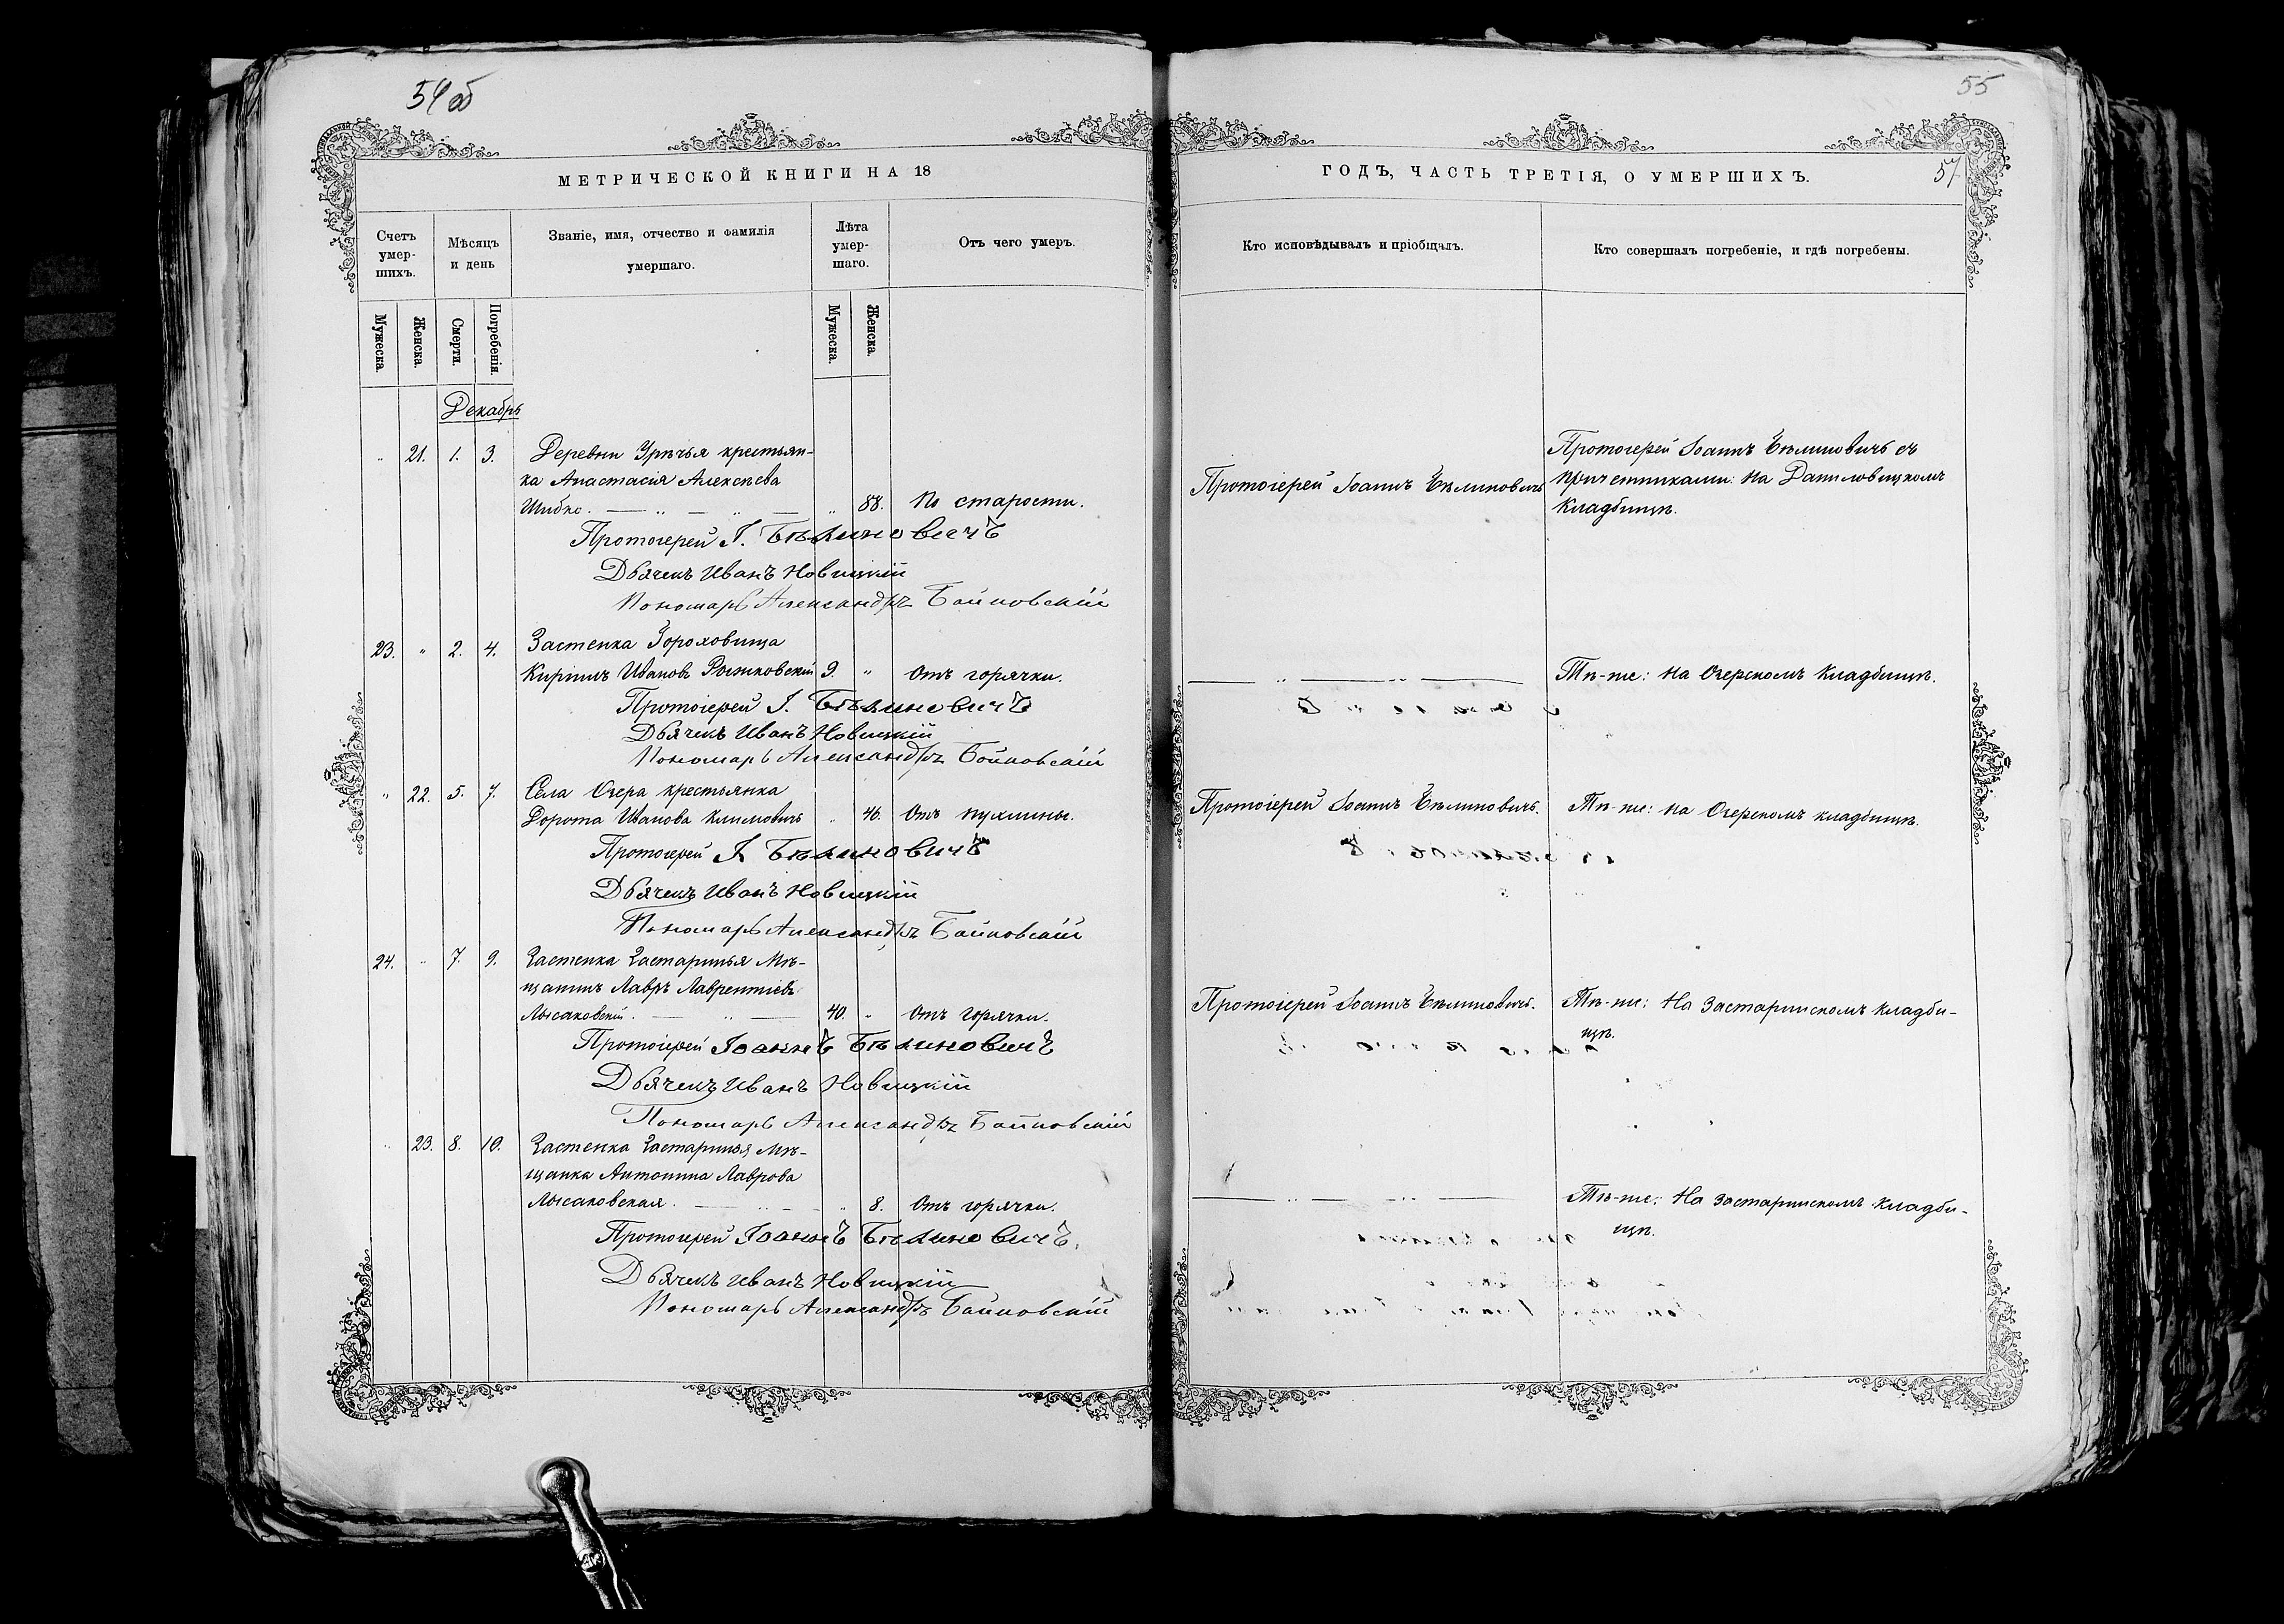 54 об
55
МЕТРИЧЕСКОЙ КНИГИ НА 18
ГОДЪ, ЧАСТЬ ТРЕТІЯ, О УМЕРШИХЪ.
57
Счетъ умер-шихъ.
Мѣсяцъ и день
Званіе, имя, отчество и фамилія умершаго.
Лѣта умер-шаго.
Отъ чего умеръ.
Кто исповѣдывалъ и пріобщалъ.
Кто совершалъ погребеніе, и гдѣ погребены.
Мужеска.
Женска.
Смерти.
Погребенія.
Мужеска.
Женска.
Декабрь
Протоіерей Іоаннъ Бѣлиновичъ съ
" 21. 1. 3. Деревни Урѣчья крестьян-
причетниками: На Даниловицкомъ
ка Анастасія Алексѣева
Протоіерей Іоаннъ Бѣлиновичъ
кладбищѣ.
Шибко. — " — " — " 88. По старости.
Протоіерей І. Бѣлиновичъ
Дьячекъ Иванъ Новицкій
Пономарь Александръ Байковскій
23. " 2. 4. Застенка Гороховища
Кирилъ Ивановъ Рынковскій 9. " Отъ горячки.
— " — " —
Тѣ-же: На Озерскомъ кладбищѣ.
Протоіерей І. Бѣлиновичъ
Дьячекъ Иванъ Новицкій
Пономарь Александръ Байковскій
" 22. 5. 7. Села Озера крестьянка
Дорота Иванова Климовичъ " 46. Отъ пухлины.
Протоіерей Іоаннъ Бѣлиновичъ.
Тѣ-же: На Озерскомъ кладбищѣ.
Протоіерей І. Бѣлиновичъ
Дьячекъ Иванъ Новицкій
Пономарь Александръ Байковскій
24. " 7. 9. Застенка Застаринья Мѣ-
щанинъ Лавръ Лаврентіевъ
Лысаковскій. — " — 40. " Отъ горячки.
Протоіерей Іоаннъ Бѣлиновичъ.
Тѣ-же: На Застаринскомъ кладби-
щѣ.
Протоіерей Іоаннъ Бѣлиновичъ
Дьячекъ Иванъ Новицкій
Пономарь Александръ Байковскій
" 23. 8. 10. Застенка Застаринья Мѣ-
щанка Антонина Лаврова
Лысаковская. — " — " 8. Отъ горячки.
— " — " —
Тѣ-же: На Застаринскомъ кладби-
щѣ.
Протоіерей Іоаннъ Бѣлиновичъ.
Дьячекъ Иванъ Новицкій
Пономарь Александръ Байковскій